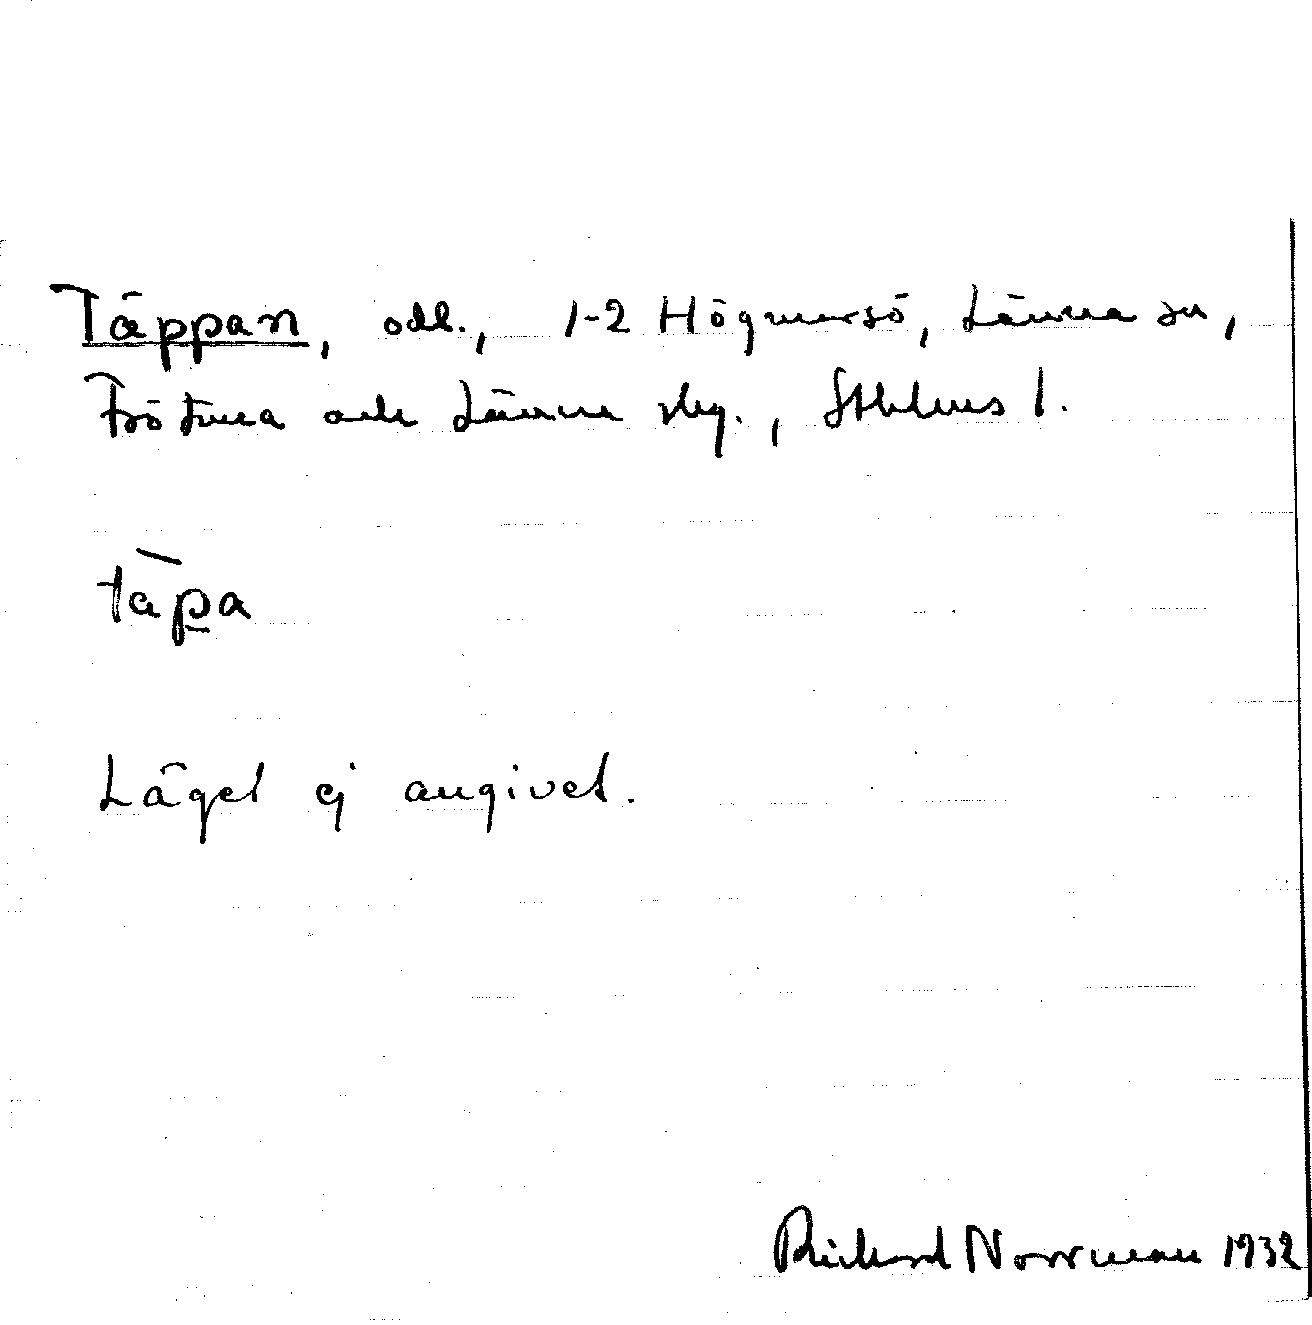 Täppan, odl., 1-2 Högmarsö, Länna sn,
Frötuna och Länna skg., Sthlms l.
tàpa
Läget ej angivet.
Richard Norrman 1932